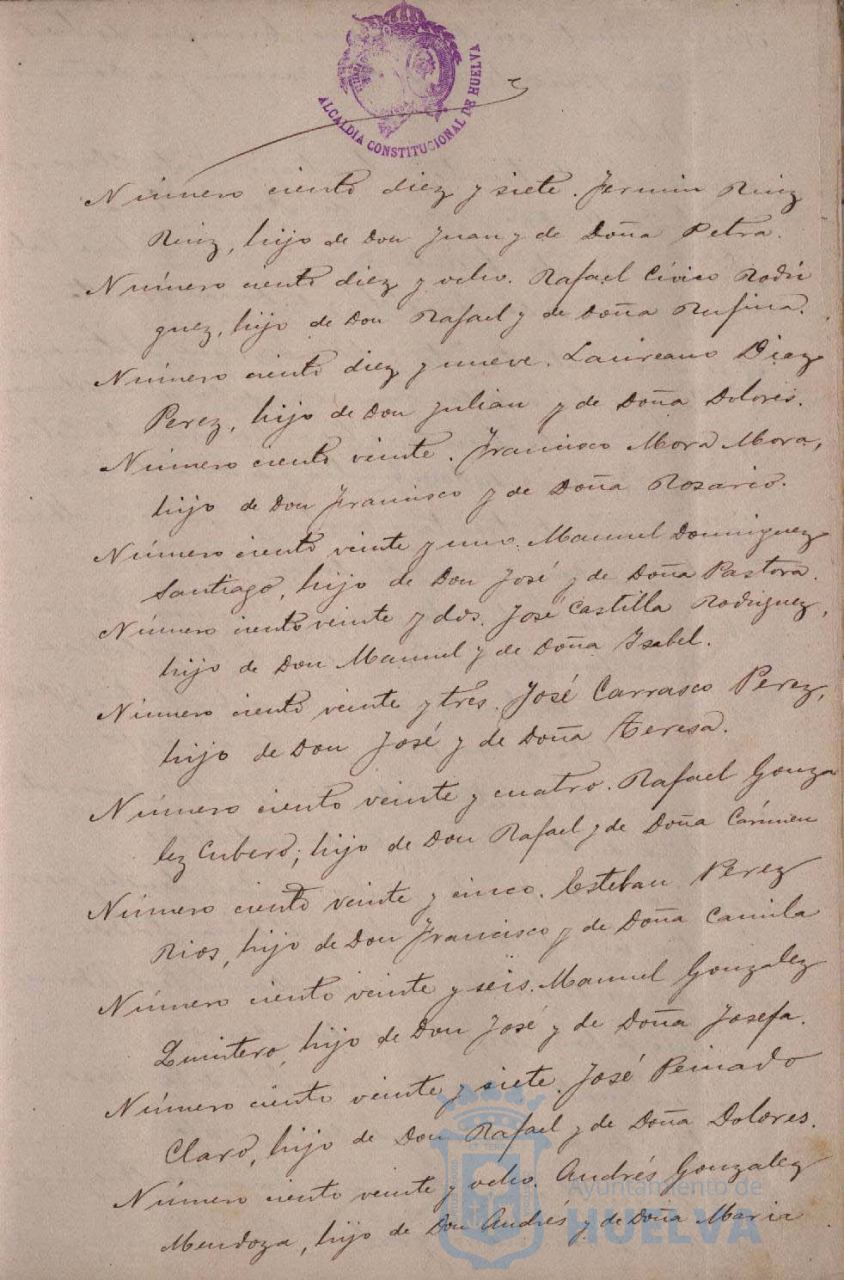 ALCALDIA CONSTITUCIONAL DE HUELVA
Número ciento diez y siete. Fermin Ruiz
Ruiz, hijo de Don Juan y de Doña Petra.
Número ciento diez y ocho. Rafael Cívico Rodri
guez, hijo de Don Rafael y de Doña Rufina.
Número ciento diez y nueve. Laureano Diaz
Perez, hijo de Don Julian y de Doña Dolores.
Número ciento veinte. Francisco Mora Mora,
hijo de Don Francisco y de Doña Rosario.
Número ciento veinte y uno. Manuel Dominguez
Santiago, hijo de Don José y de Doña Pastora.
Número ciento veinte y dos. José Castilla Rodriguez,
hijo de Don Manuel y de Doña Isabel.
Número ciento veinte y tres. José Carrasco Perez,
hijo de Don José y de Doña Teresa.
Número ciento veinte y cuatro. Rafael Gonza
lez Cubero; hijo de Don Rafael y de Doña Cármen
Número ciento veinte y cinco. Esteban Perez
Rios, hijo de Don Francisco y de Doña Camila
Número ciento veinte y seis. Manuel Gonzalez
Quintero, hijo de Don José y de Doña Josefa.
Número ciento veinte y siete. José Peinado
Claro, hijo de Don Rafael y de Doña Dolores.
Número ciento veinte y ocho. Andrés Gonzalez
Mendoza, hijo de Don Andres y de Doña Maria
Ayuntamiento de
HUELVA